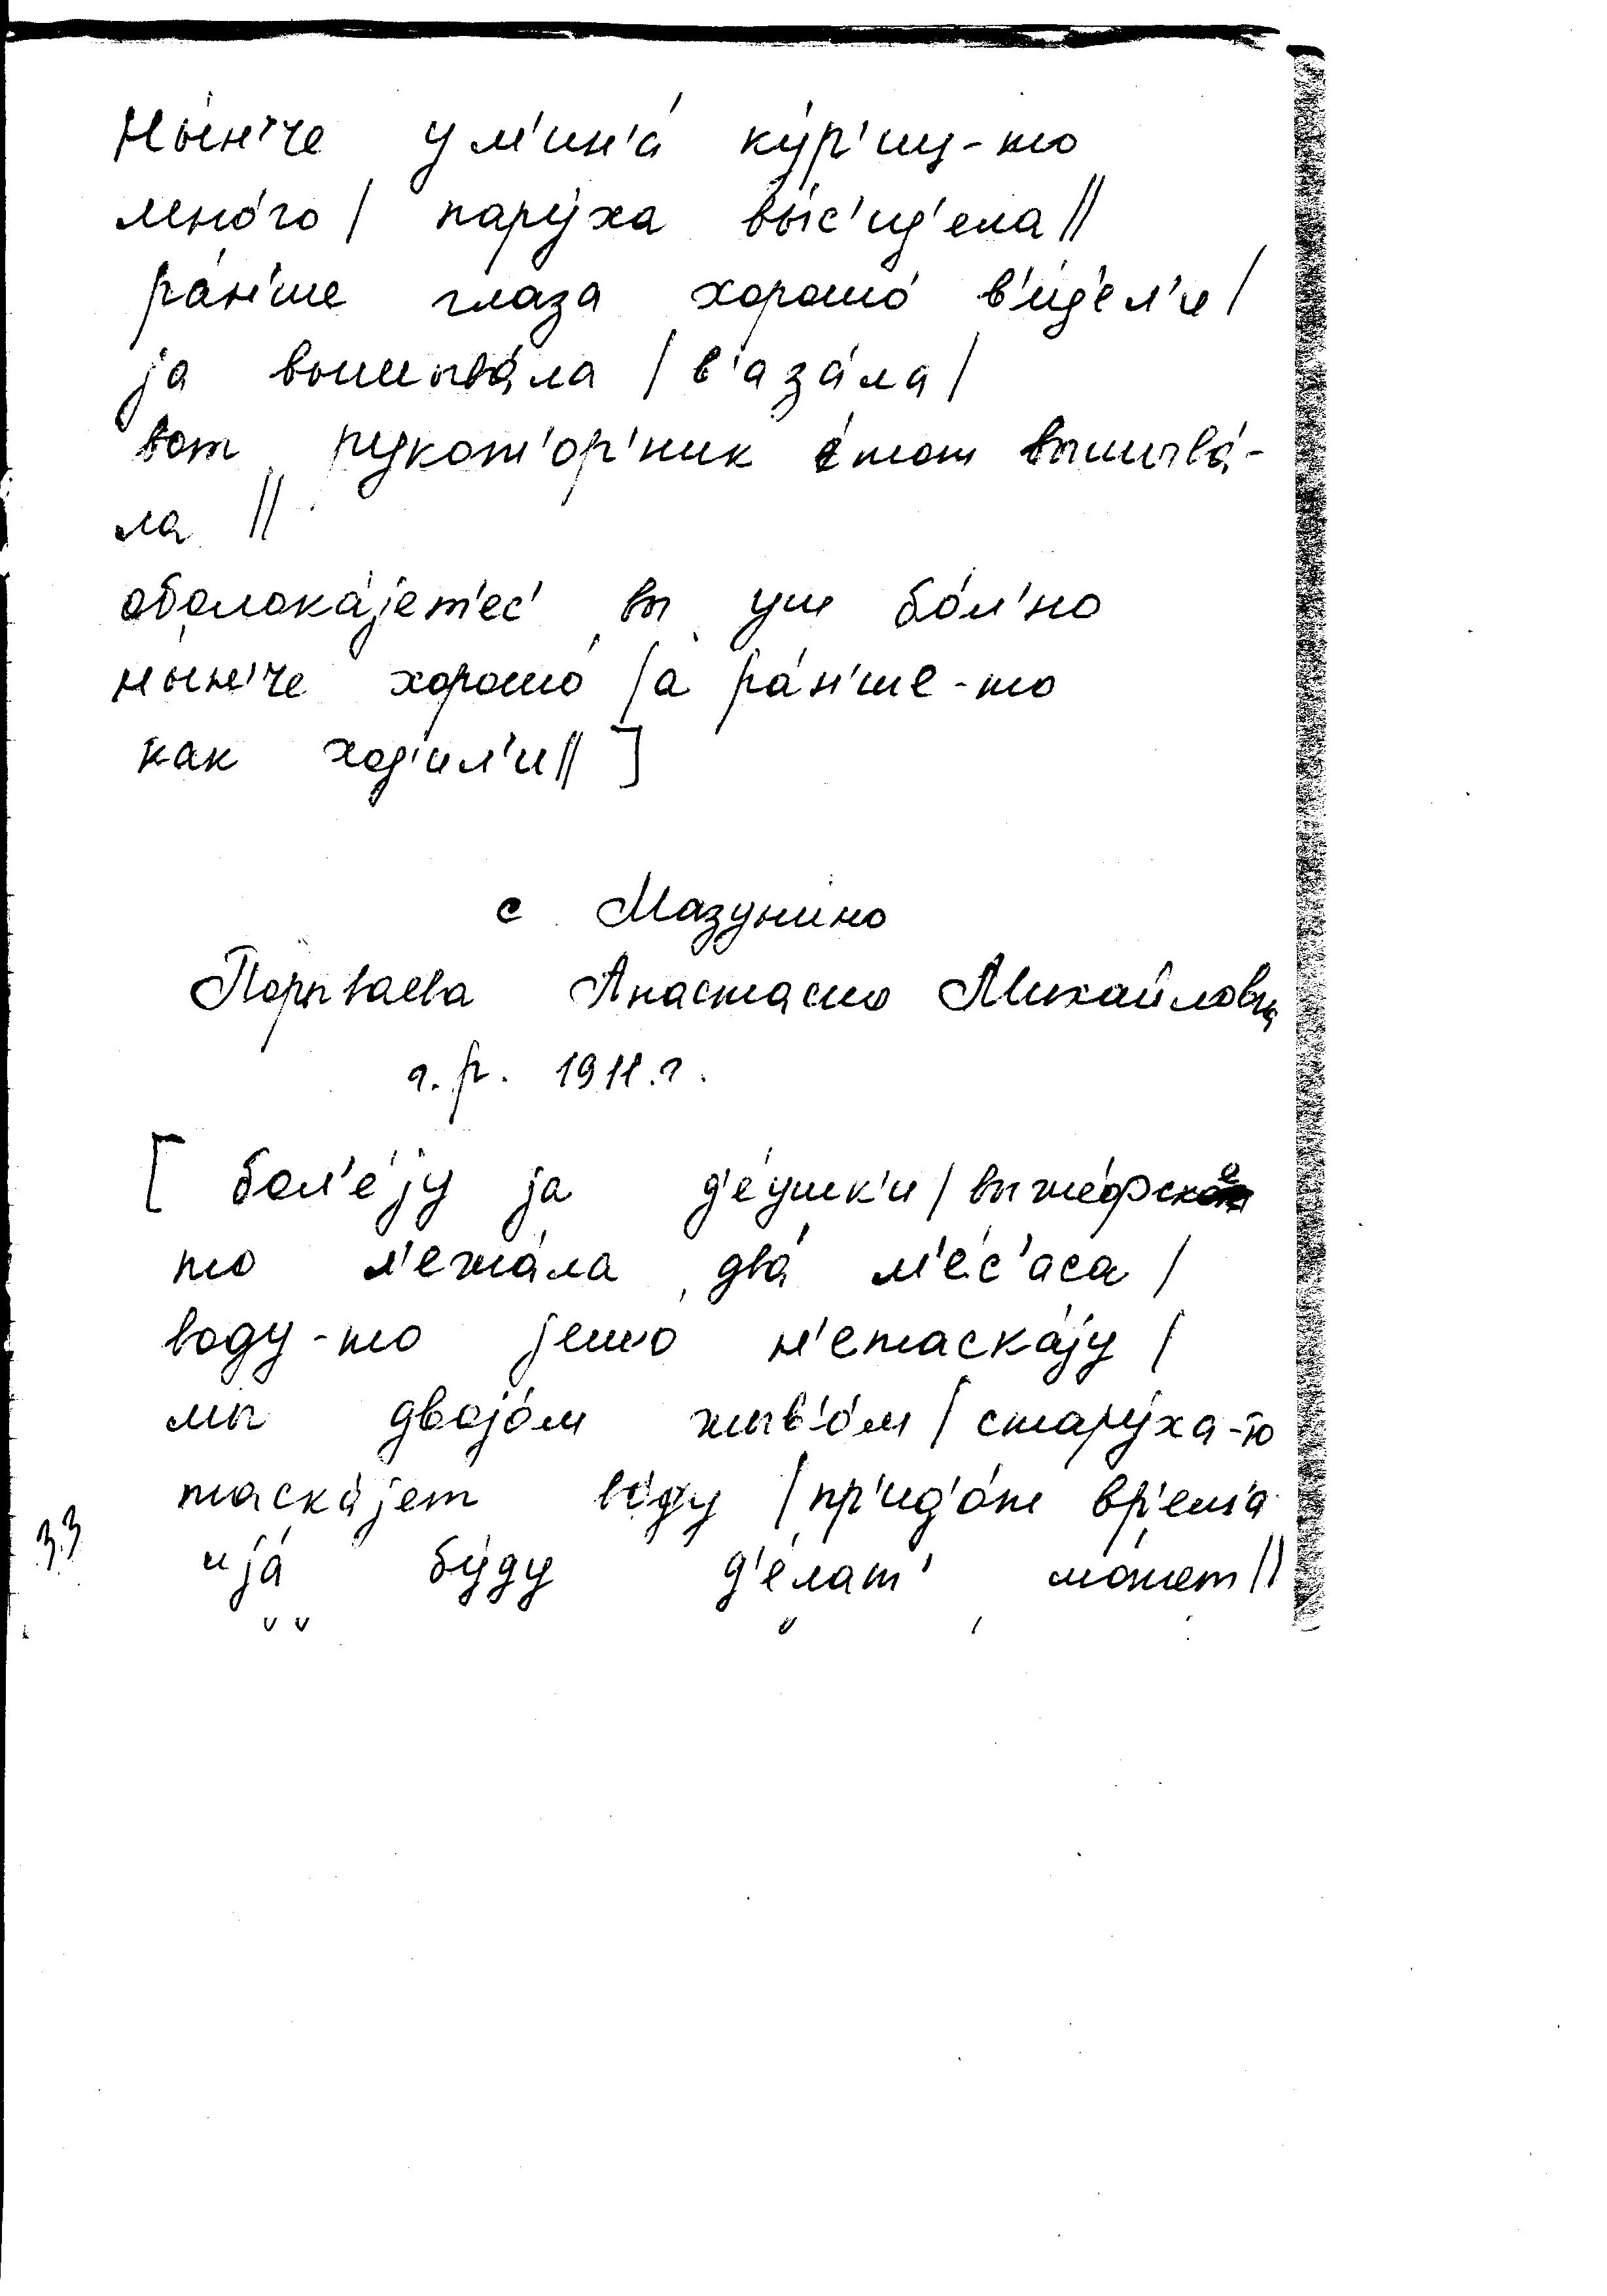 ны́н'че у м'ин'а́ ку́р'иц-то
мно́го | пару́ха вы́с'ид'ела ||
ра́н'ше глаза хорошо́ в'и́д'ел'и |
ја вышыва́ла | в'аза́ла |
вот рукот'о́р'ник э́тот вышыва́-
ла ||
оболока́јет'ес' вы уш бо́л'но
ны́н'че хорошо́ | а ра́н'ше-то
как ход'ил'и || ]
с Мазунино
Порываева Анастасия Михайловна
г.р. 1911.г.
[ бол'е́ју ја д'е́ушк'и |
то л'ежа́ла два́ м'е́с'аса |
воду-то јешо́ н'етаска́ју |
мы двојо́м жыв'о́м | стару́ха-то
таска́јет во́ду | пр'ид'о́т вр'ем'а
и ја́ бу́ду д'е́лат' мо́жет ||
33